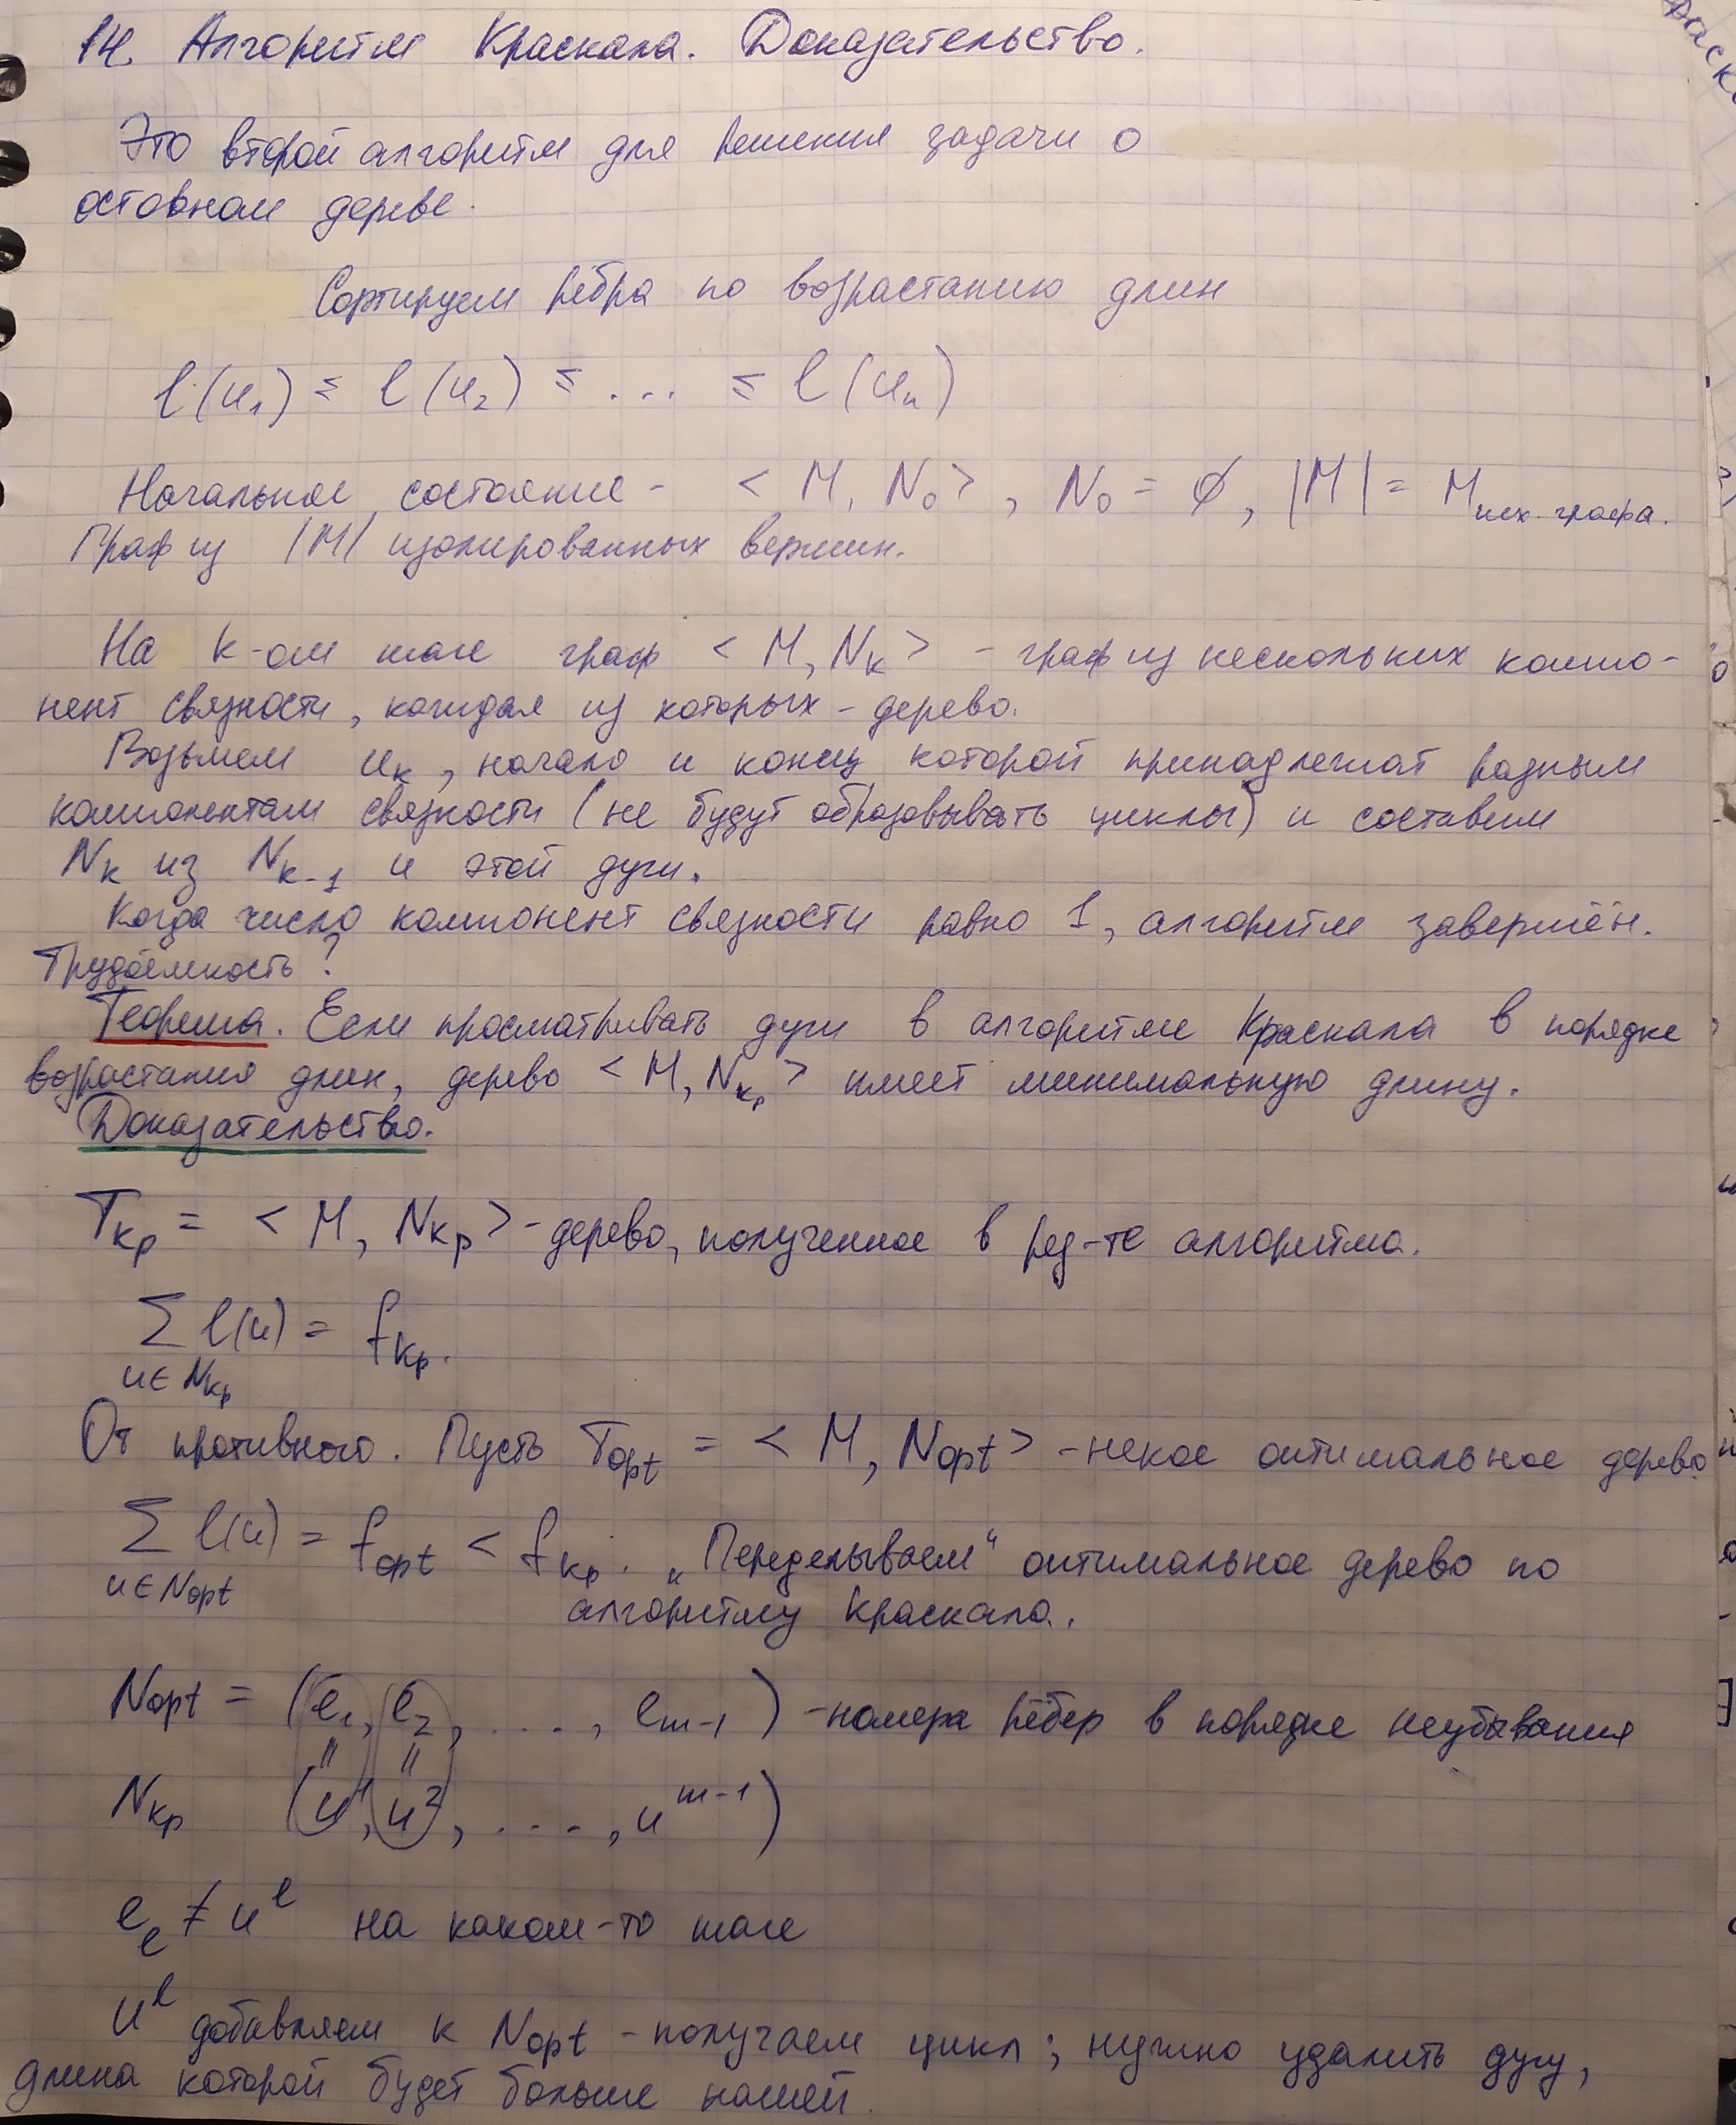 14. Алгоритм Краскала. Доказательство.
Это второй алгоритм для решения задачи о
остовном дереве.
Сортируем рёбра по возрастанию длин
l(u₁) ≤ l(u₂) ≤ ... ≤ l(uₙ)
Начальное состояние - < M, N₀ >, N₀ = ∅, |M| = M исх. графа.
Граф из |M| изолированных вершин.
На k-ом шаге граф < M, Nₖ > - граф из нескольких компо-
нент связности, каждая из которых - дерево.
Возьмем uₖ, начало и конец которой принадлежат разным
компонентам связности (не будут образовывать циклы) и составим
Nₖ из Nₖ₋₁ и этой дуги.
Когда число компонент связности равно 1, алгоритм завершён.
Трудоёмкость?
Теорема. Если просматривать дуги в алгоритме Краскала в порядке
возрастания длин, дерево < M, Nкр > имеет минимальную длину.
Доказательство.
Tкр = < M, Nкр > - дерево, полученное в рез-те алгоритма.
∑ l(u) = fкр.
u∈Nкр
От противного. Пусть Topt = < M, Nopt > - некое оптимальное дерево.
∑ l(u) = fopt < fкр. „Переделываем“ оптимальное дерево по
u∈Nopt
алгоритму Краскала.
Nopt = (e₁, e₂, ...., eₘ₋₁) - номера рёбер в порядке неубывания
" "
Nкр (u¹, u², ...., uᵐ⁻¹)
eₑ ≠ uˡ на каком-то шаге
uˡ добавляем к Nopt - получаем цикл; нужно удалить дугу,
длина которой будет больше нашей.